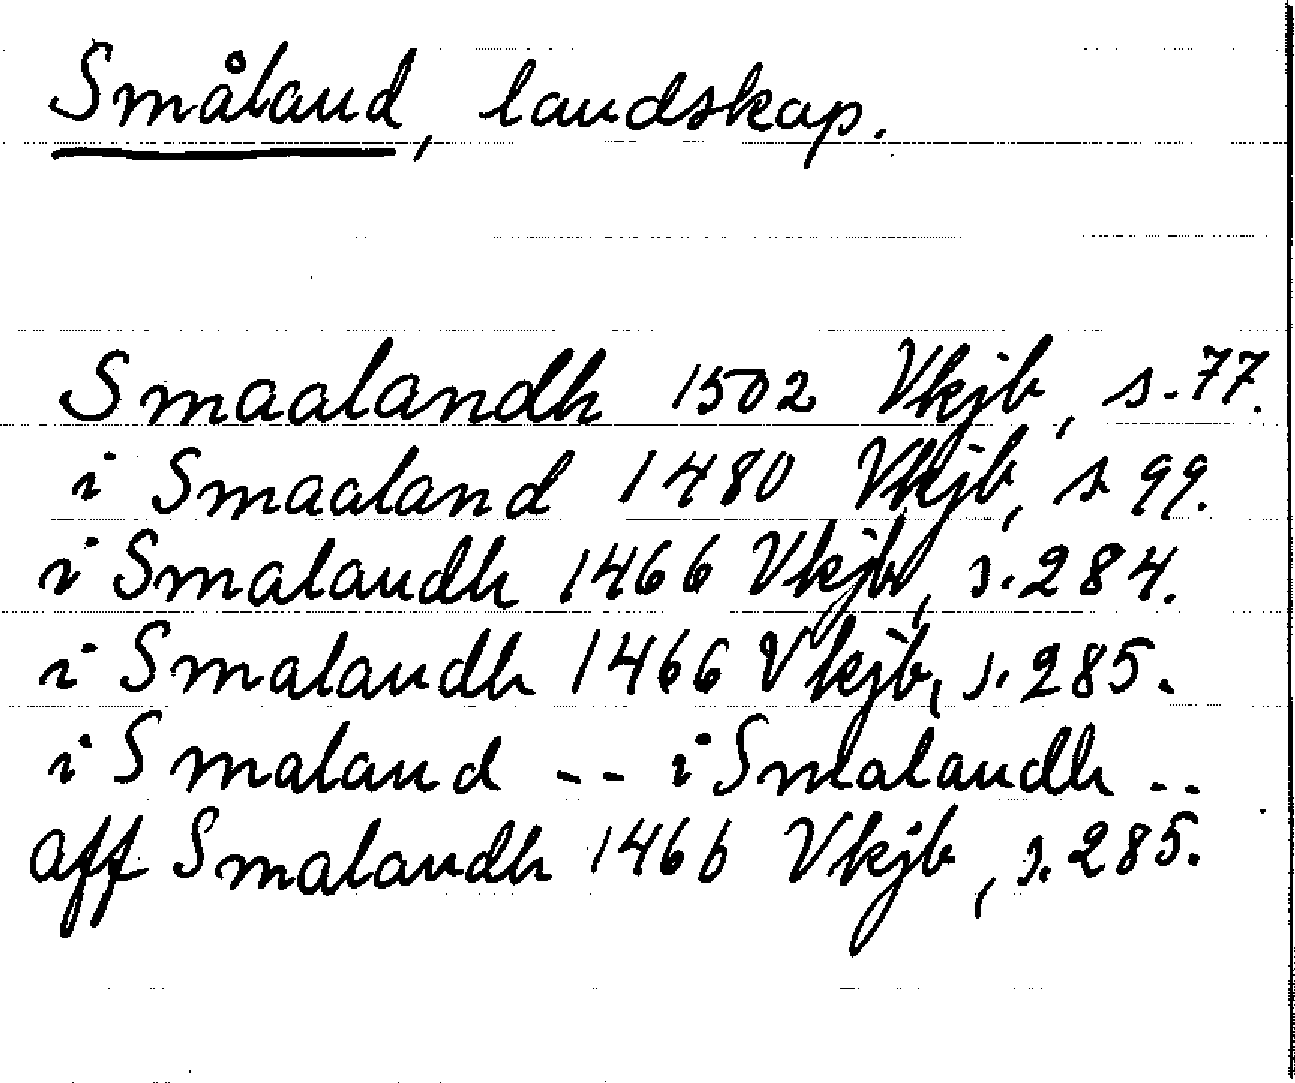 Småland, landskap.
Smaalandh 1502 Vkjb, s. 77.
i Smaaland 1480 Vkjb, s 99.
i Smalandh 1466 Vkjb, s. 284.
i Smalandh 1466 Vkjb, s. 285.
i Smaland -- i Smalandh --
aff Smalandh 1466 Vkjb, s. 285.